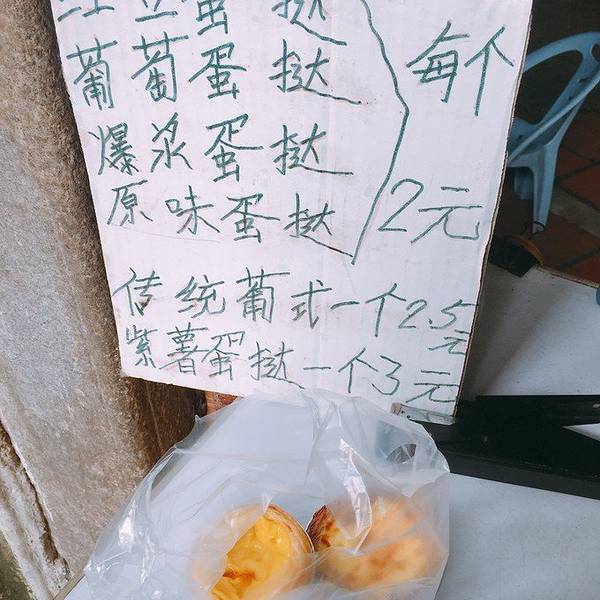 红豆蛋挞
葡萄蛋挞
爆浆蛋挞
原味蛋挞
每个
2元
传统葡式一个2.5元
紫薯蛋挞一个3元